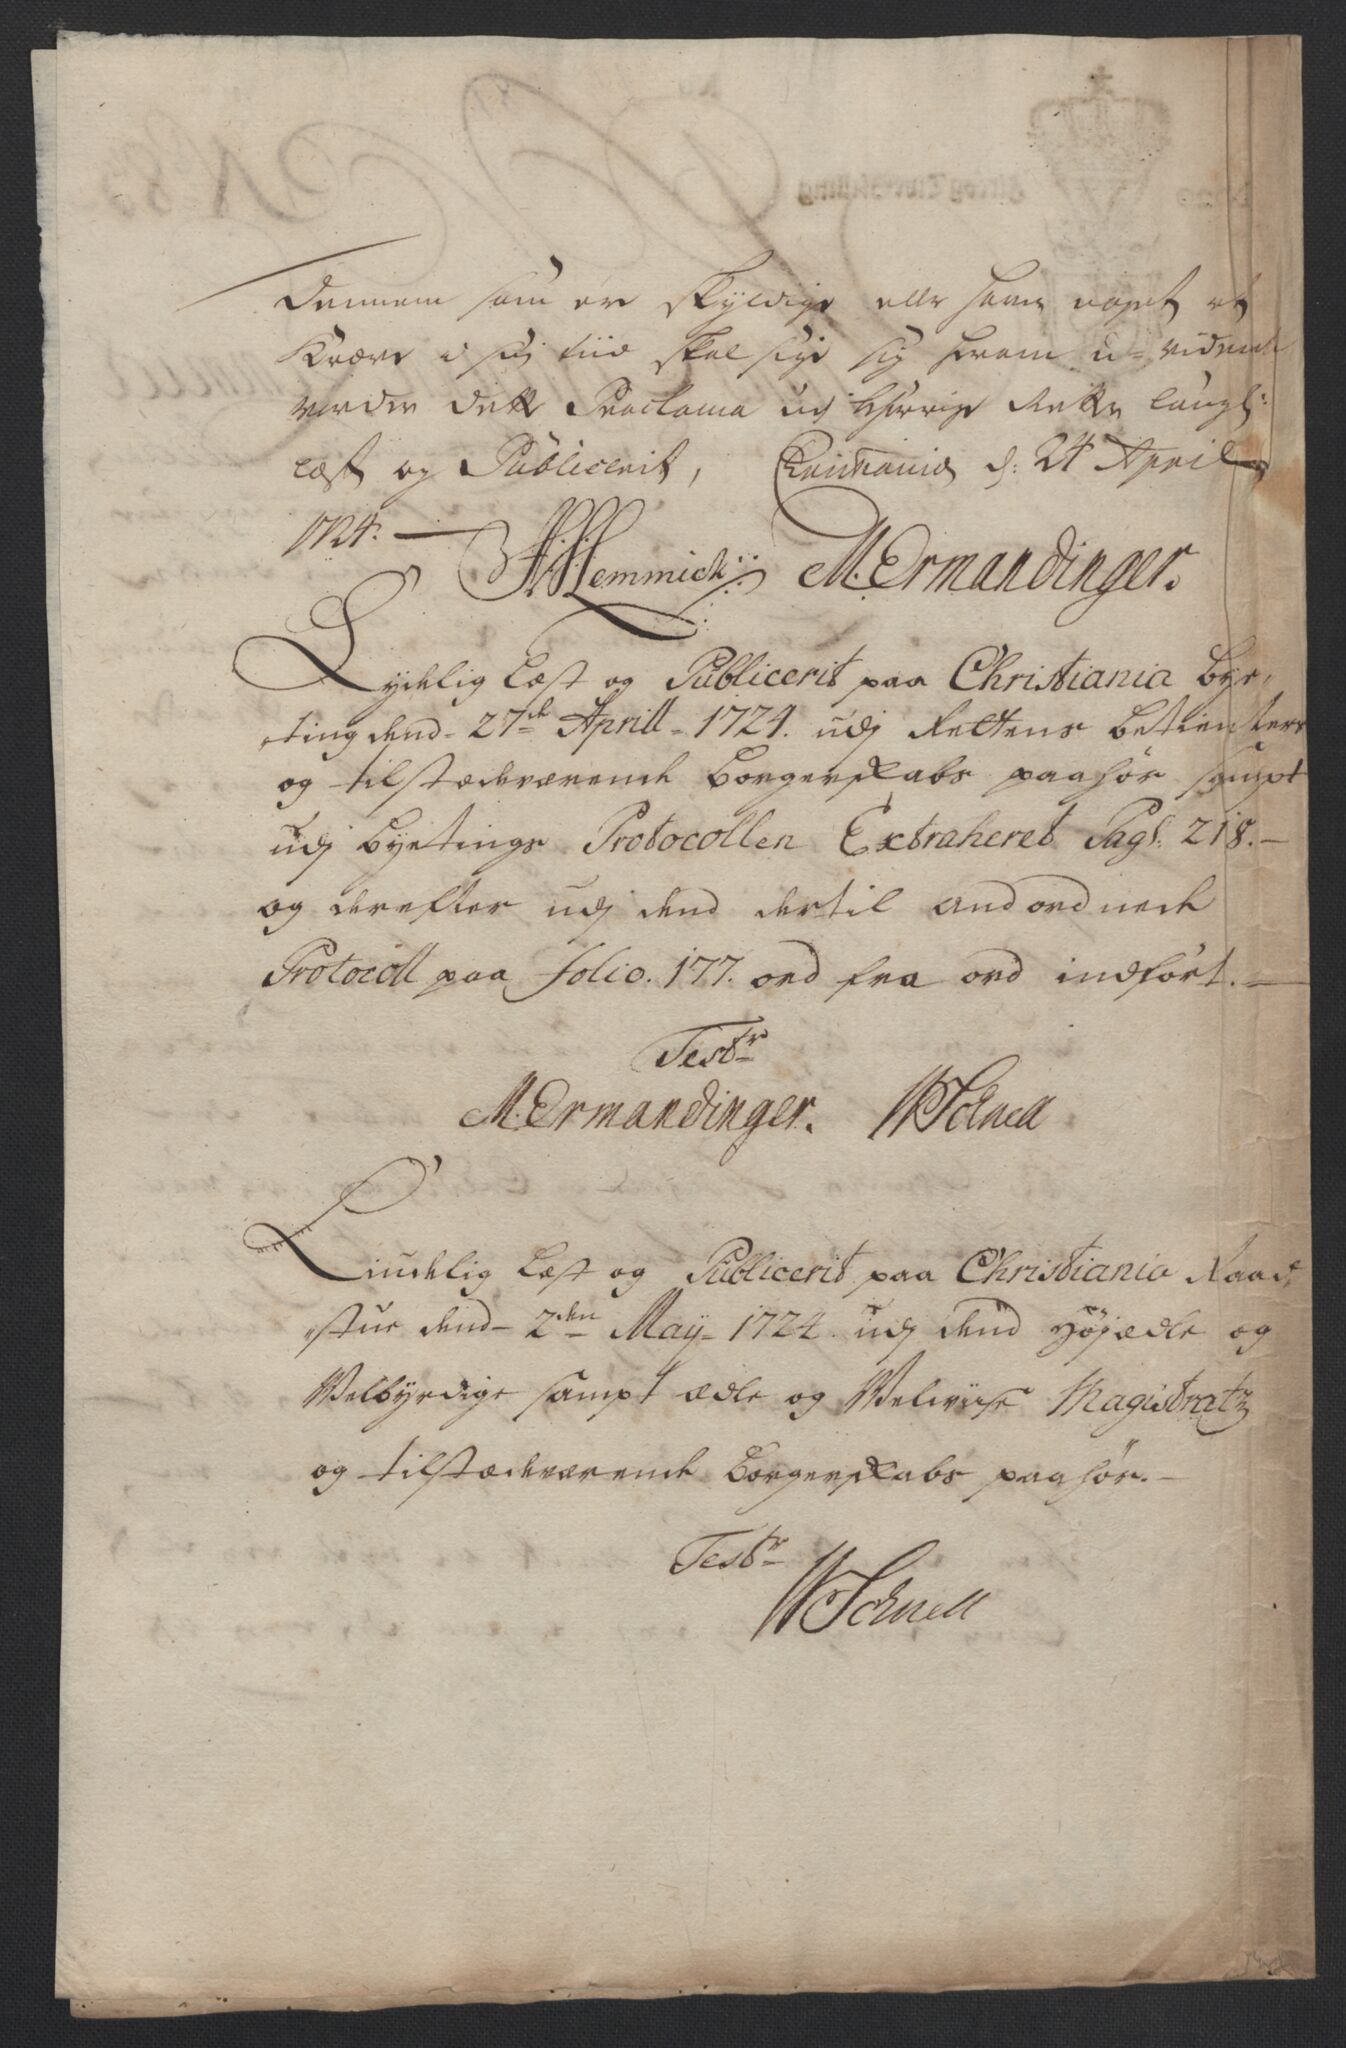 Dennem som er skyldige eller haver noget at
Kræve i sin tiid skal sige sig herom u-vidende
verder dette Proclama udj Byerige Rette lougl:
læst og Publicerit, Christiania d: 24 April
1724.
H: Hemmich M. Ermandinger.
Lydelig Læst og Publicerit paa Christiania Bye,
ting dend 27de Aprill 1724. udj Rettens betienters
og tilstædeværende Borgerskabs paahør sampt
udj Byetings Protocollen Extraheret Pag: 218.
og derefter udj dend dertil andordnede
Protocoll paa folio. 177. ord fra ord indført.
Testr
M. Ermandinger. W Schnell
Liudelig Læst og Publicerit paa Christiania Raad,
stue dend 2den May 1724. udj dend Højædle og
Velbyrdige sampt ædle og Velviise Magistratz
og tilstædeværende Borgerskabs paahør.
Testr
W Schnell